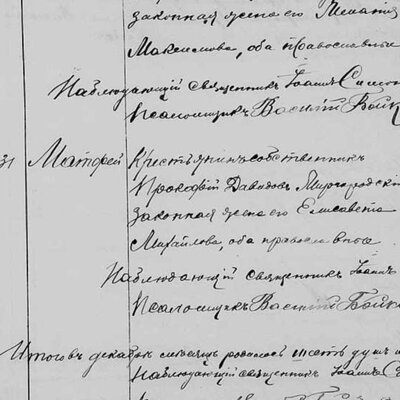 законная жена его Мелания
Максимова, оба православные
Наблюдающий священник Іоанн
Псаломщик Василій Бойк
31 Матфей Крестьянин собственник
Прокофій Давидов Миргородскій
законная жена его Елисавета
Михайлова, оба православные
Наблюдающий священник Іоанн
Псаломщик Василій Бойк
Итого в декабре месяце родилось шесть душ
Наблюдающій священник Іоанн